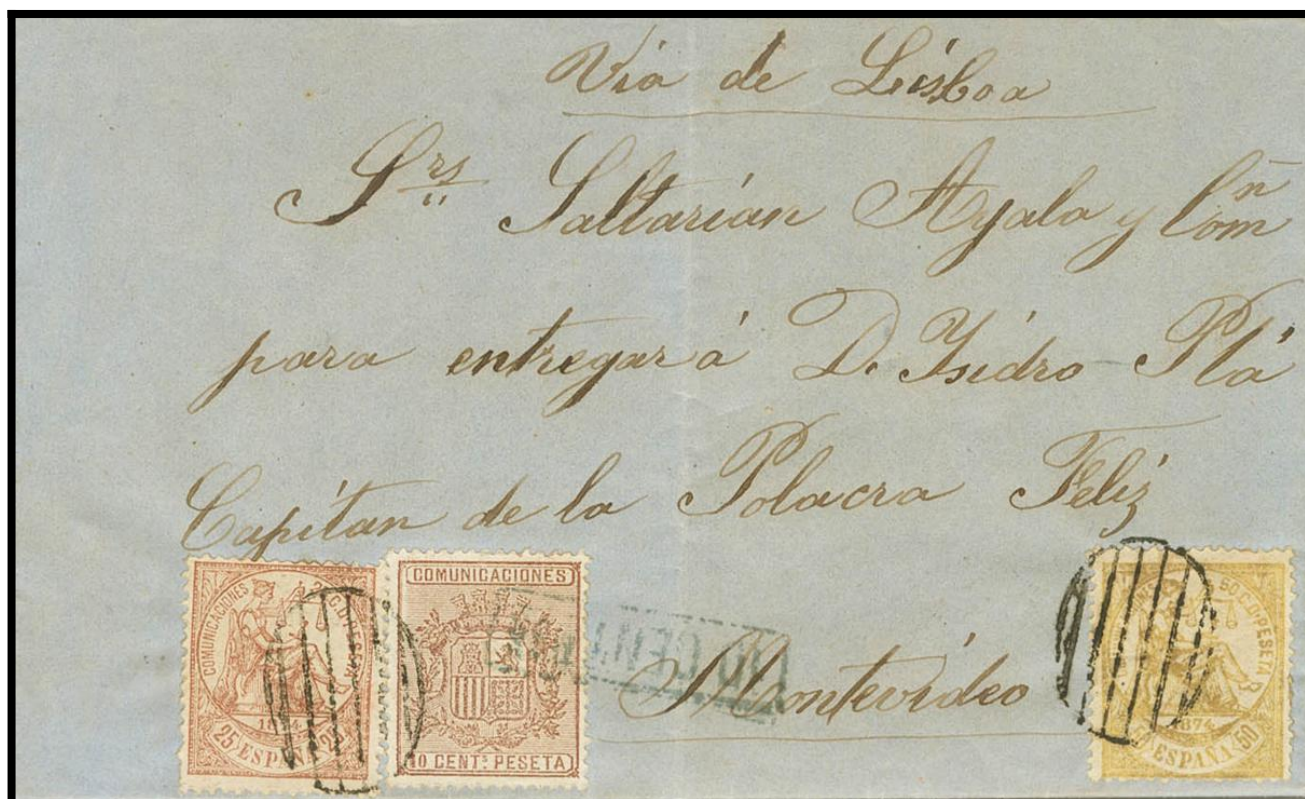 Via de Lisboa
Srs Saltarián Ayala y Comñ
para entregar á D. Ysidro Plá
Capitan de la Polacra Feliz
Montevideo
COMUNICACIONES
25 ESPAÑA 25
COMUNICACIONES
10 CENTS PESETA
10 CENT
50 C. DE PESETA
1874
ESPAÑA 50